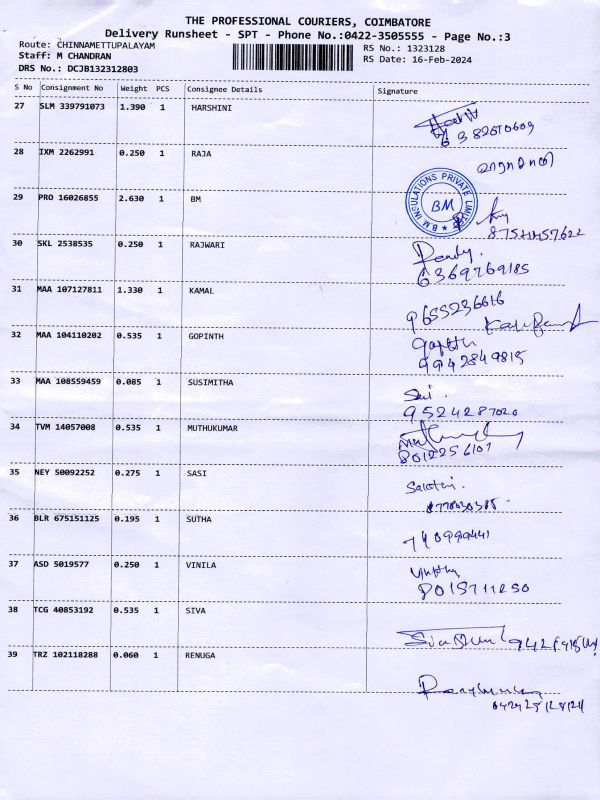 THE PROFESSIONAL COURIERS, COIMBATORE
Delivery Runsheet - SPT - Phone No.:0422-3505555 - Page No.:3
Route: CHINNAMETTUPALAYAM
RS No.: 1323128
Staff: M CHANDRAN
RS Date: 16-Feb-2024
DRS No.: DCJB132312803
S No Consignment No Weight PCS Consignee Details Signature
27 SLM 339791073 1.390 1 HARSHINI
28 IXM 2262991 0.250 1 RAJA
29 PRO 16026855 2.630 1 BM
B M INSULATIONS PRIVATE LIMITED
BM
30 SKL 2538535 0.250 1 RAJWARI
6369769185
31 MAA 107127811 1.330 1 KAMAL
9655236616
32 MAA 104110202 0.535 1 GOPINTH
Gopinth
9942849815
33 MAA 108559459 0.085 1 SUSIMITHA
9524287020
34 TVM 14057008 0.535 1 MUTHUKUMAR
8012256107
35 NEY 50092252 0.275 1 SASI
36 BLR 675151125 0.195 1 SUTHA
740999441
37 ASD 5019577 0.250 1 VINILA
8015711250
38 TCG 40853192 0.535 1 SIVA
39 TRZ 102118288 0.060 1 RENUGA